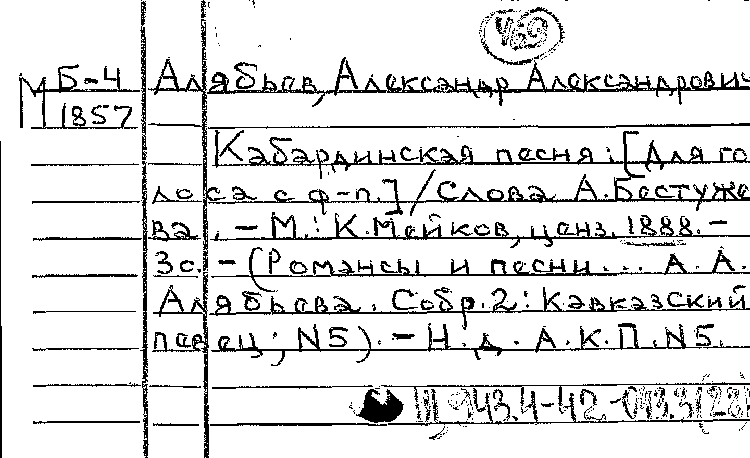 М Б-4 Алябьев, Александр Александрович
1857
Кабардинская песня: [Для го
лоса с ф-п.] / Слова А. Бестуже
ва. - М.: К. Мейков, ценз. 1888. -
3с. - (Романсы и песни... А. А.
Алябьева. Собр. 2: Кавказский
певец; N5). - Н. д. А. К. П. N5.
III, 943.4-42